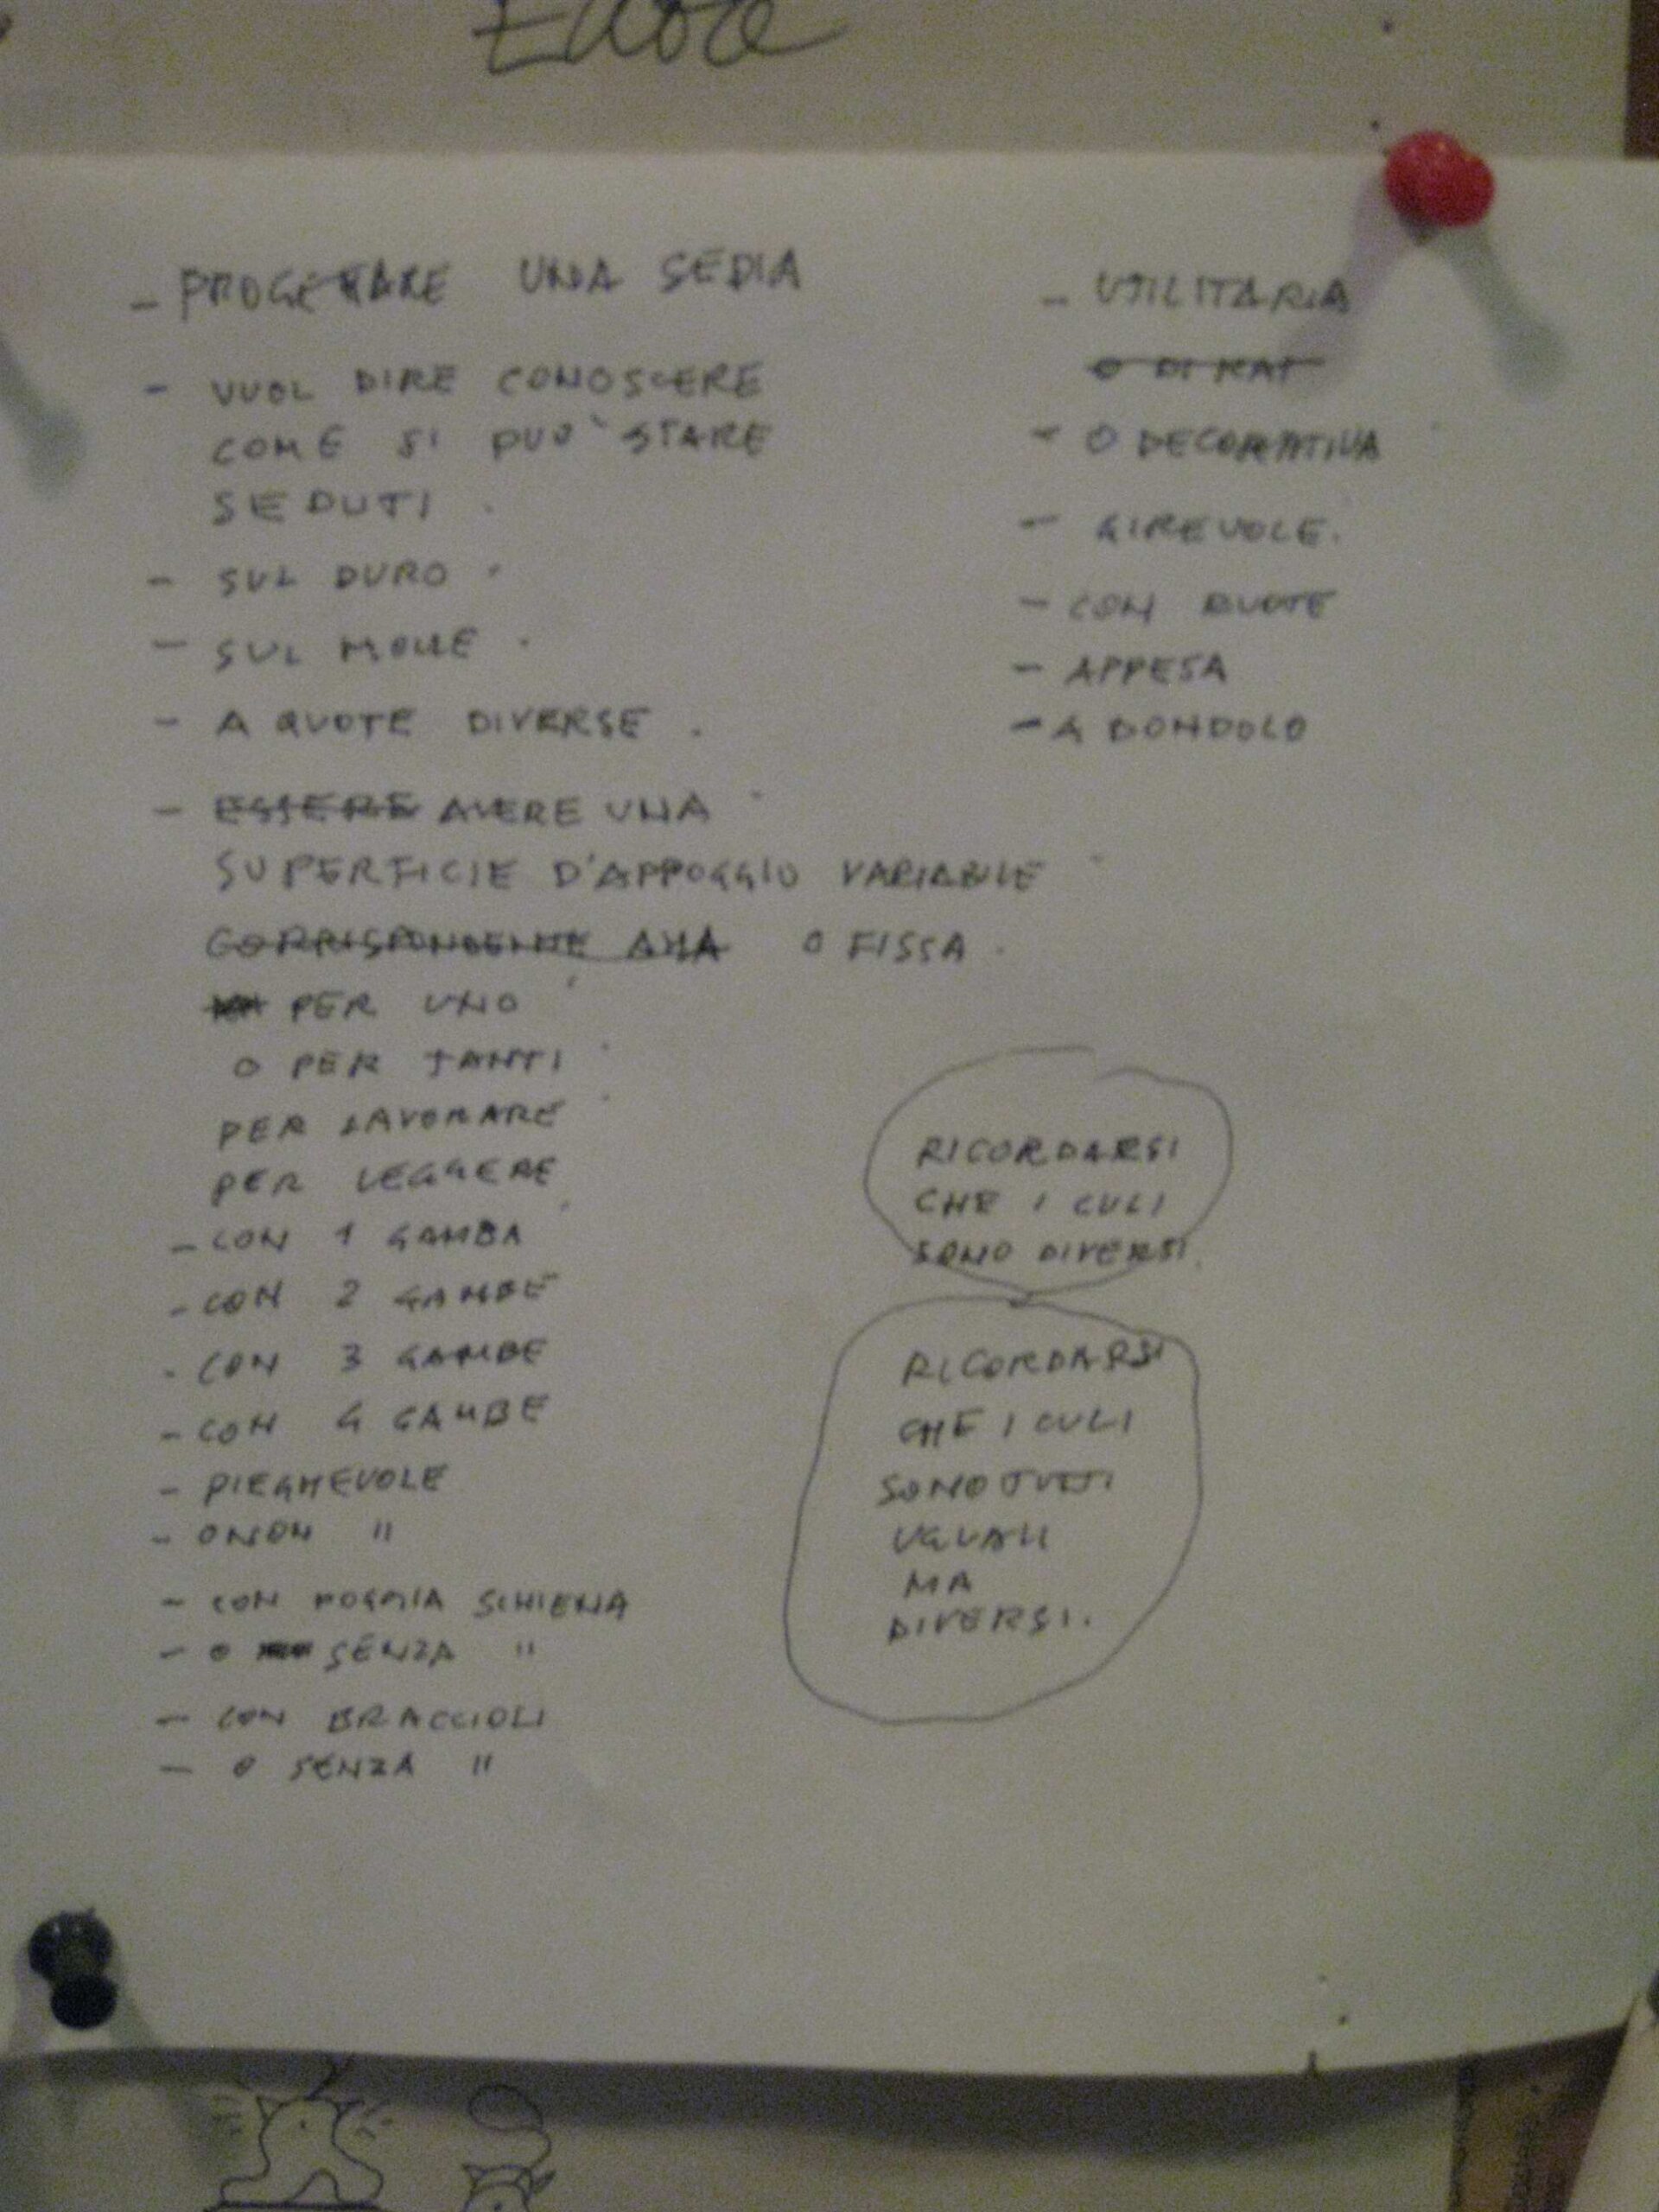 - PROGETTARE UNA SEDIA
- VUOL DIRE CONOSCERE
COME SI PUO' STARE
SEDUTI.
- SUL DURO.
- SUL MOLLE.
- A QUOTE DIVERSE.
- ESSERE AVERE UNA
SUPERFICIE D'APPOGGIO VARIABILE
CORRISPONDENTE ALLA O FISSA.
PER UNO
O PER TANTI
PER LAVORARE
PER LEGGERE
- CON 1 GAMBA
- CON 2 GAMBE
- CON 3 GAMBE
- CON 4 GAMBE
- PIEGHEVOLE
- O NON "
- CON POGGIA SCHIENA
- O SENZA "
- CON BRACCIOLI
- O SENZA "
- UTILITARIA
O DI
- O DECORATIVA
- GIREVOLE.
- CON RUOTE
- APPESA
- A DONDOLO
RICORDARSI
CHE I CULI
SONO DIVERSI.
RICORDARSI
CHE I CULI
SONO TUTTI
UGUALI
MA
DIVERSI.